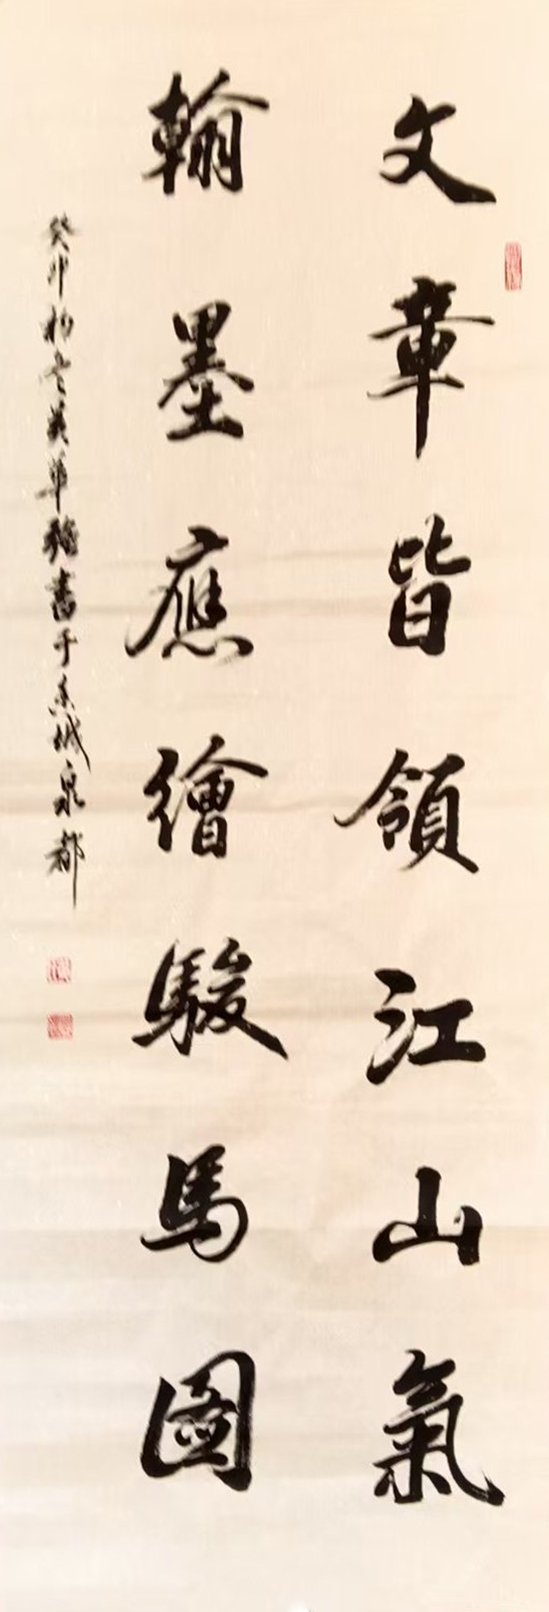 文章皆領江山氣
翰墨應繪駿馬圖
癸卯初冬英華書于泉城泉都